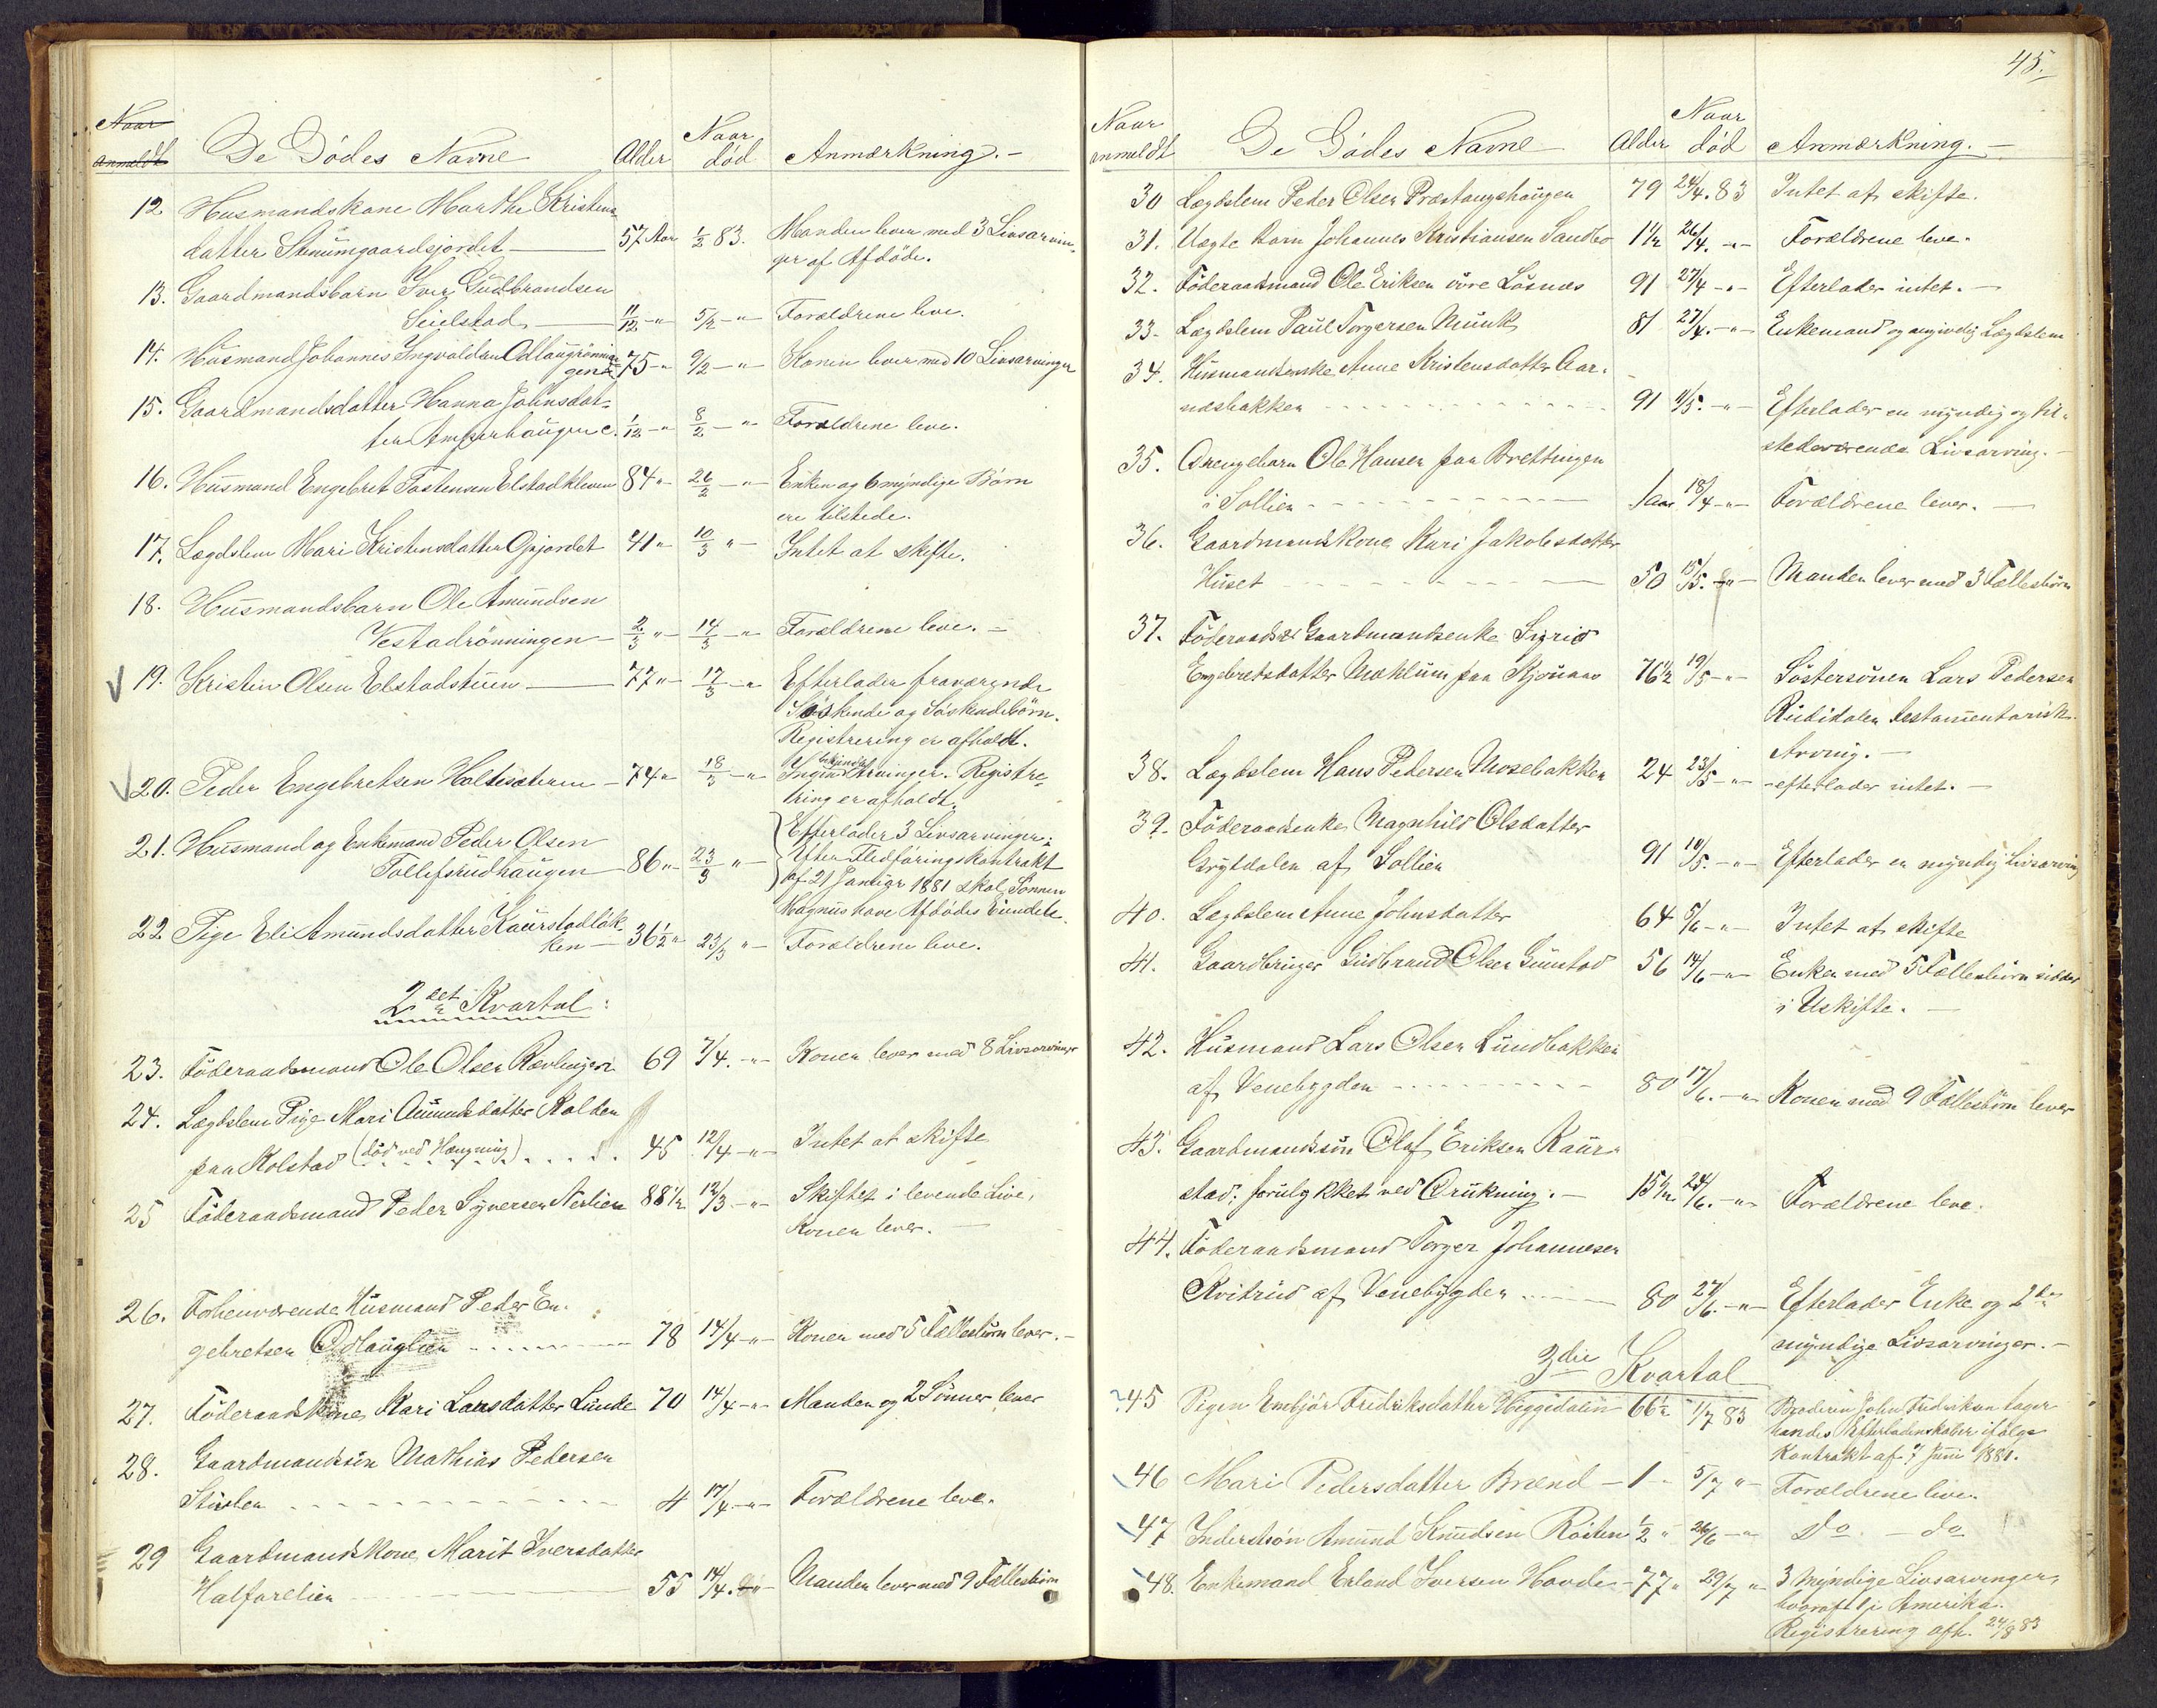 Naar
anmeldt De Dödes Navne Alder Naar död Anmærkning.-
12. Husmandskone Marthe Kristens-
datter Stenumgaardsjordet 57 Aar 1/2 83. Manden lever med 3 Livsarvin-
ger af Afdöde.
13. Gaardmandsbarn Iver Gudbrandsen
Seielstad 11/12 -"- 5/2 -"- Forældrene leve.
14. Husmand Johannes Ingvaldsen Odlaugrönnin-
gen 75 -"- 9/2 -"- Konen lever med 10 Livsarvinger
15. Gaardmandsdatter Hanna Johnsdat-
ter Amperhaugen e. 1/12 -"- 8/2 -"- Forældrene leve.
16. Husmand Engebret Tostensen Elstadkleven 84 "- 26/2 -"- Enken og 6 myndige Börn
ere tilstede.
17. Lægdslem Mari Kristensdatter Opjordet 41 "- 10/3 "- Intet at skifte.
18. Husmandsbarn Ole Amundsen
Vestadrönningen 2/3 "- 14/3 -"- Forældrene leve.-
19. Kristen Olsen Elstadstuen 77 "- 17/3 -"- Efterlader fraværende
Söskende og Söskendebörn.
Registrering er afholdt.
20. Peder Engebretsen Holtesæteren 74 "- 18/3 -"- Ingen bekjendte Arvinger. Registre-
ring er afholdt.
21. Husmand og Enkemand Peder Olsen
Tollefsrudhaugen 86 "- 23/3 "- Efterlader 3 Livsarvinger;
Efter Fledföringskontrakt
af 21 Januar 1881 skal Sönnen
Magnus have Afdödes Eiendele.
22 Pige Eli Amundsdatter Kaurstadlök-
ken 36 1/2 " 23/3 "- Forældrene leve.
2det Kvartal:
23. Föderaadsmand Ole Olsen Rævlingen 69 7/4. -"- Konen lever med 8 Livsarvinger
24. Lægdslem Pige Mari Amundsdatter Kolden
paa Kolstad (död ved Hængning) 45 12/4 -"- Intet at skifte
25 Föderaadsmand Peder Syversen Nerlien 88 1/2 12/3 -"- Skiftet i levende Live,
Konen lever.-
26. Forhenværende Husmand Peder En-
gebretsen Odlauglien 78 14/4 -"- Konen med 5 Fællesbörn lever.-
27. Föderaadskone Kari Larsdatter Lunde 70 14/4 -"- Manden og 2 Sönner lever
28. Gaardmandssön Mathias Pedersen
Stuslen 4 17/4 -"- Forældrene leve.
29 Gaardmandskone Marit Iversdatter
Halfarelien 55 14/4. -"- Manden lever med 9 Fællesbörn
45.
Naar anmeldt De Dödes Navne Alder Naar död Anmærkning.-
30 Lægdslem Peder Olsen Præstangshaugen 79 24/4. 83 Intet at skifte.
31. Uægte Barn Johannes Kristiansen Sandbo 1 1/2 26/4. -"- Forældrene leve.
32. Föderaadsmand Ole Eriksen övre Lösnæs 91 27/4 -"- Efterlader intet.-
33. Lægdslem Paul Torgersen Munk 81 27/4. -"- Enkemand og angivelig Lægdslem
34. Husmandsenke Anne Kristensdatter Aar-
næsbakken 91 4/5. -"- Efterlader en myndig og til-
stedeværende Livsarving.-
35. Drengebarn Ole Hansen paa Brettingen
i Sollien 1 aar 18/4 -"- Forældrene lever.-
36. Gaardmandskone Kari Jakobsdatter
Huset 50 15/5. -"- Manden lever med 3 Fællesbörn
37. Föderaads Gaardmandsenke Sigrid
Engebretsdatter Mæhlum paa Kjönaas 76 1/2 19/5 -"- Söstersönen Lars Pedersen
Rudidalen testamentarisk
Arving.-
38. Lægdslem Hans Pedersen Mosebakken 24 23/5 -"- efterlader intet.-
39. Föderaadsenke Magnhild Olsdatter
Grytdalen af Sollien 91 10/5. -"- Efterlader en myndig Livsarving
40. Lægdslem Anne Johnsdatter 64 5/6 -"- Intet at skifte
41. Gaardbruger Gudbrand Olsen Gunstad 56 14/6 -"- Enken med 5 Fællesbörn sidder
i Uskifte.-
42. Husmand Lars Olsen Lundbakken
af Venebygden 80 17/6. -"- Konen med 9 Fællesbörn lever
43. Gaardmandssön Olaf Eriksen Kaur-
stad; forulykket ved Drukning.- 15 1/2 24/6. -"- Forældrene leve.
44. Föderaadsmand Torger Johannesen
Kvitrud af Venebygden 80 27/6. -"- Efterlader Enke og 2de
myndige Livsarvinger.-
3die Kvartal
45 Pigen Embjör Fredriksdatter Heggedalen 66 1/2 1/7 83 Broderen John Fredriksen tager
handes Efterladenskaber ifölge
Kontrakt af 7 Juni 1881.
46 Mari Pedersdatter Brænd 1 - 5/7 "- Forældrene leve.
47 Inderstsön Amund Knudsen Rösten 1/2 " 26/6 -"- Do - do
48. Enkemand Erland Iversen Hovde 77 " 29/7 "- 3 Myndige Livsarvinger,
hvoraf 1 i Amerika.
Registrering afh. 24/8 83